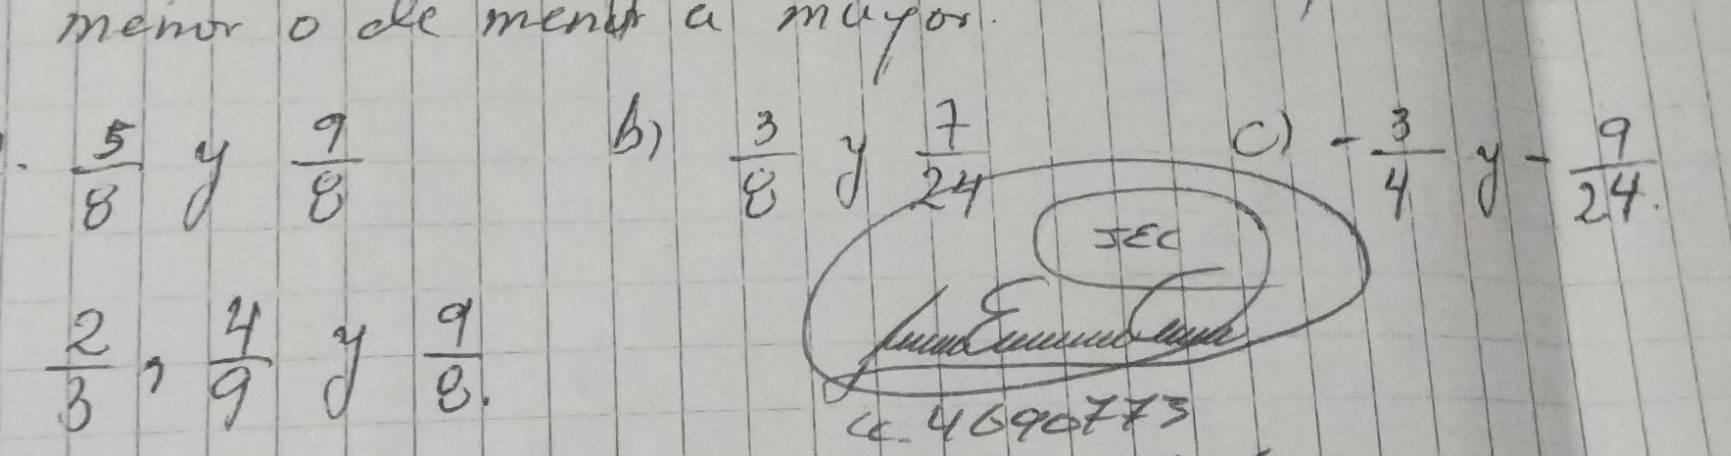 menor o de menor a mayor.
5/8 y 9/8 b) 3/8 y 7/24 c) -3/4 y -9/24.
2/3, 4/9 y 9/8.
JEC
cc. 4690773